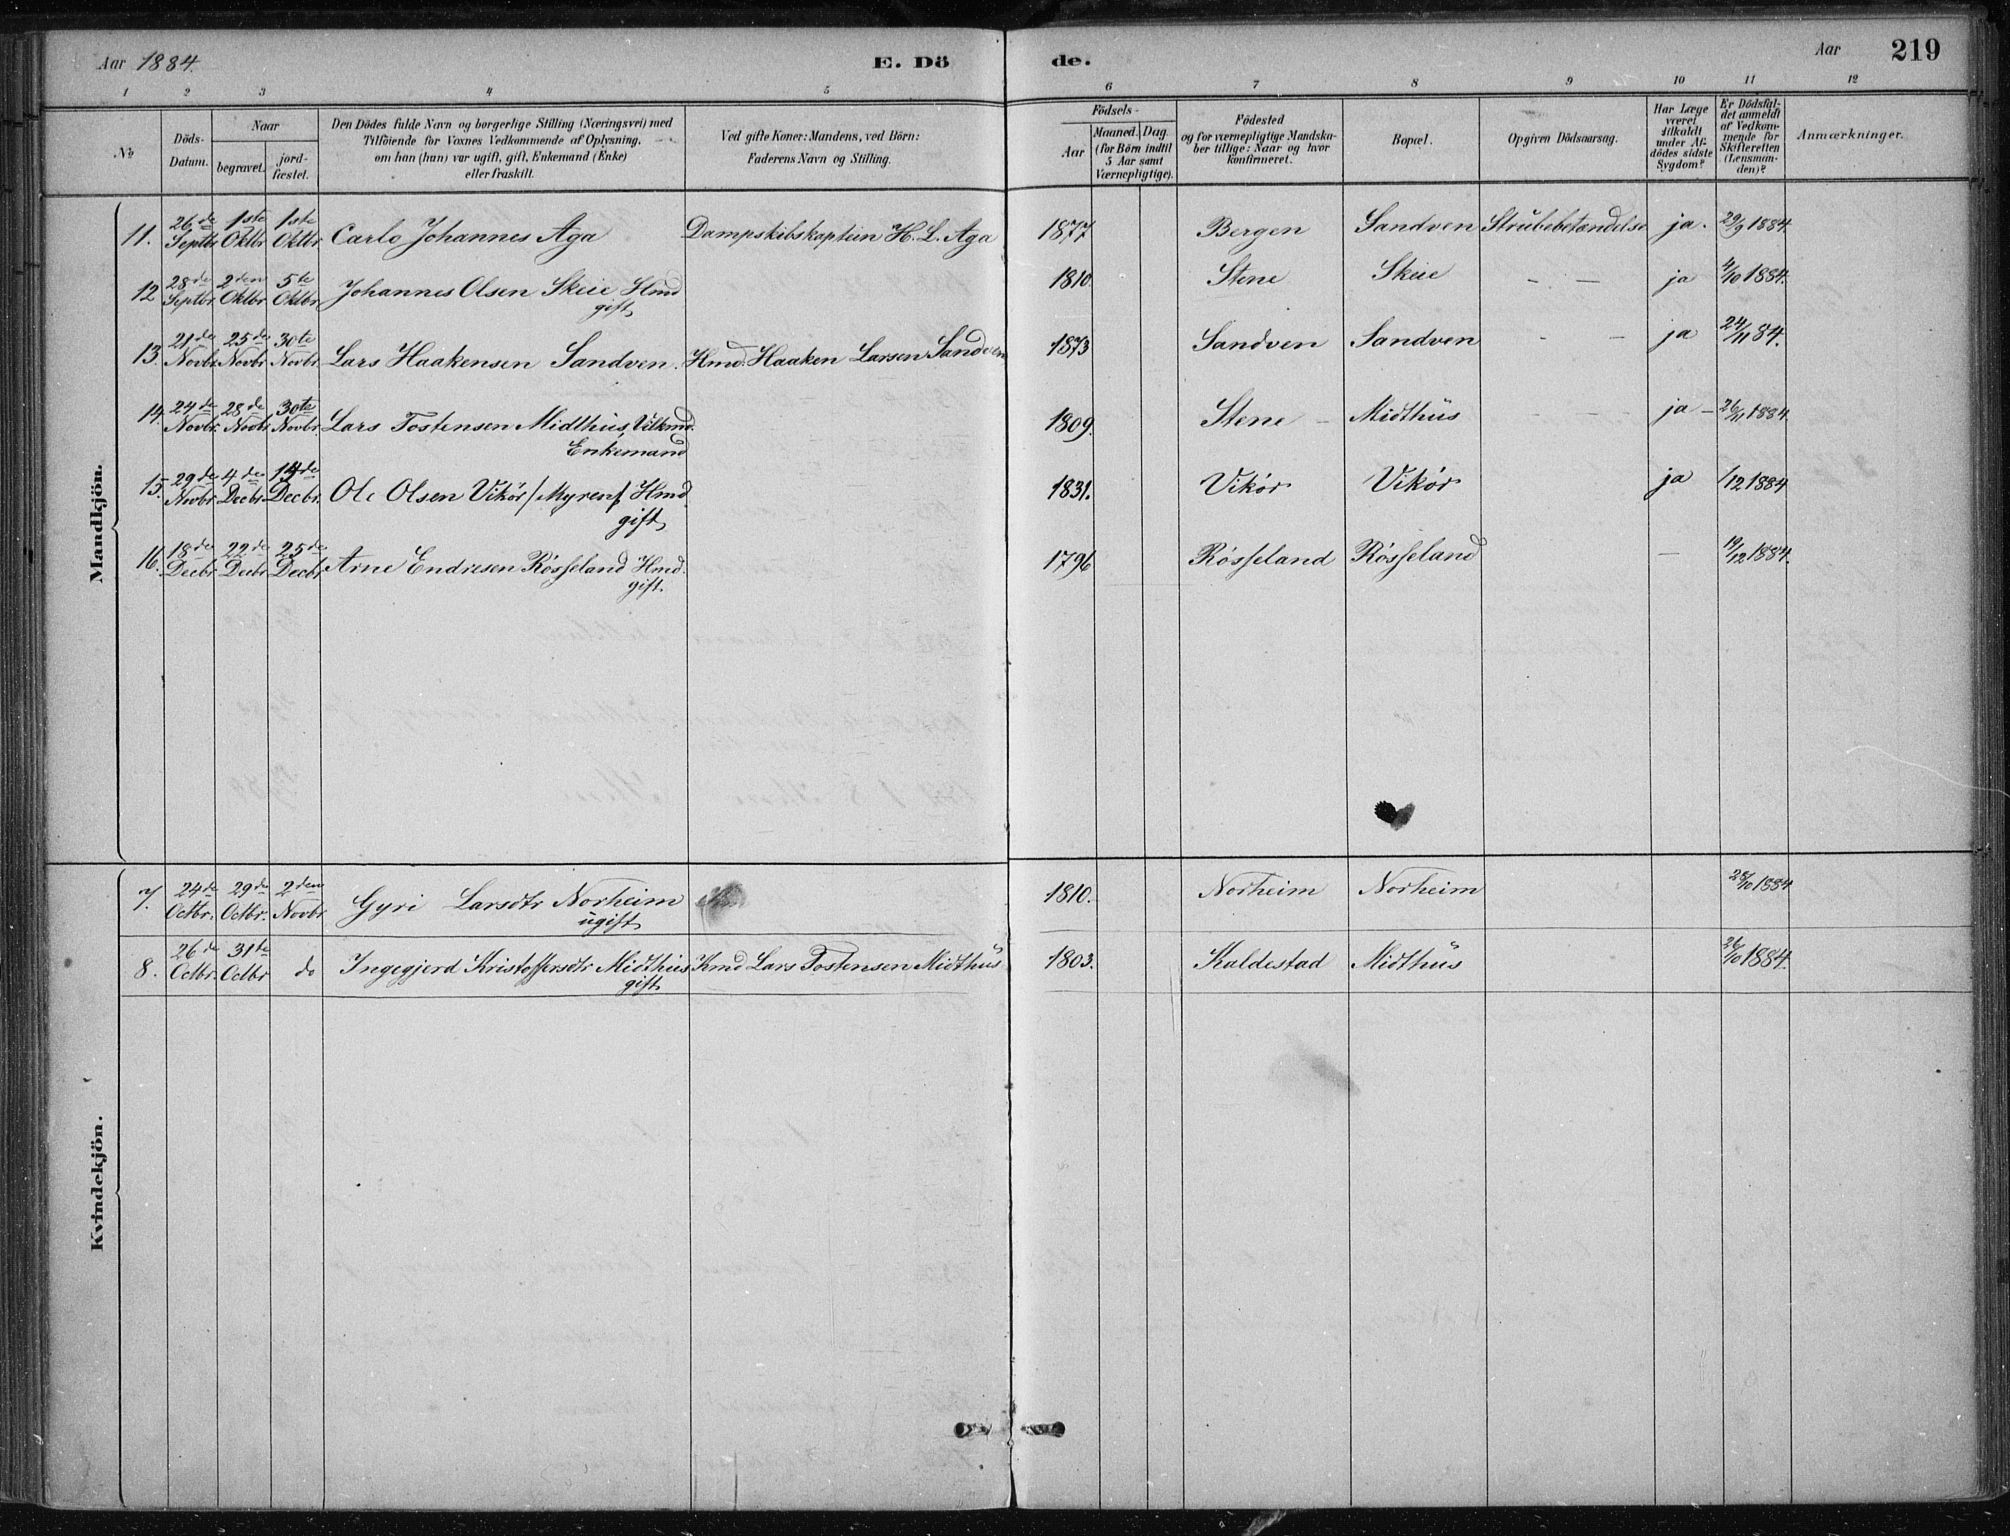 Aar 1884. E. Dö de. Aar 219
1 2 3 4 5 6 7 8 9 10 11 12
No
Döds-Datum.
Naar
begravet.
jord-fæstet.
Den Dödes fulde Navn og borgerlige Stilling (Næringsvei) med
Tilföiende for Voxnes Vedkommende af Oplysning,
om han (hun) var ugift, gift, Enkemand (Enke)
eller fraskilt.
Ved gifte Koner: Mandens, ved Börn:
Faderens Navn og Stilling.
Födsels-
Aar
Maaned. Dag.
(for Börn indtil
5 Aar samt
Værnepligtige).
Födested
og for værnepligtige Mandska-
ber tillige: Naar og hvor
konfirmeret.
Bopæl.
Opgiven Dödsaarsag.
Har Læge
været
tilkaldt
under Af-
dödes sidste
Sygdom?
Er Dödsfal-
det anmeldt
af Vedkom-
mende for
Skifteretten
(Lensman-
den)?
Anmærkninger.
Mandkjön.
11. 26de Septbr 1ste Oktbr 1ste Oktbr Carlo Johannes Aga Dampskibskaptein H. L. Aga 1877 Bergen Sandven Strubebetændelse ja. 29/9 1884.
12 28de Septbr 2den Oktbr 5te Oktbr Johannes Olsen Skeie Hmd 1810. Stene Skeie - - ja 4/10 1884.
gift
13. 21de Novbr 25de Novbr 30te Novbr. Lars Haakensen Sandven. Hmd. Haaken Larsen Sandven 1873 Sandven Sandven - - ja 24/11 84.
14. 24de Novbr. 28de Novbr 30te Novbr. Lars Tostensen Midthus, Vilkmd. 1809. Stene - Midthüs ja - 26/11 1884.
Enkemand
15. 29de Novbr 4de Decbr. 14de Decbr. Ole Olsen Vikör /Myren/ Hmd. 1831. Vikör Vikör ja 1/12 1884
gift
16. 18de Decbr 22de Decbr 25de Decbr Arne Endresen Rösseland Hmd. 1796 Rösseland Rösseland - 19/12 1884.
gift.
Kvindekjön.
7. 24de Octbr. 29de Octbr. 2den Novbr Gyri Larsdtr Norheim 1810. Norheim Norheim 28/10 1884
ugift
8. 26de Octbr. 31te Octbr do Ingegjerd Kristoffersdtr Midthüs Kmd Lars Tostensen Midthüs 1803. Kaldestad Midthüs 26/10 1884.
gift